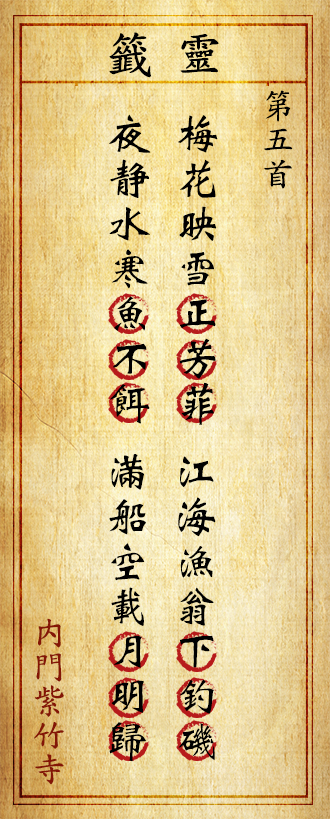 靈籤
第五首
梅花映雪正芳菲 江海漁翁下釣磯
夜靜水寒魚不餌 滿船空載月明歸
內門紫竹寺